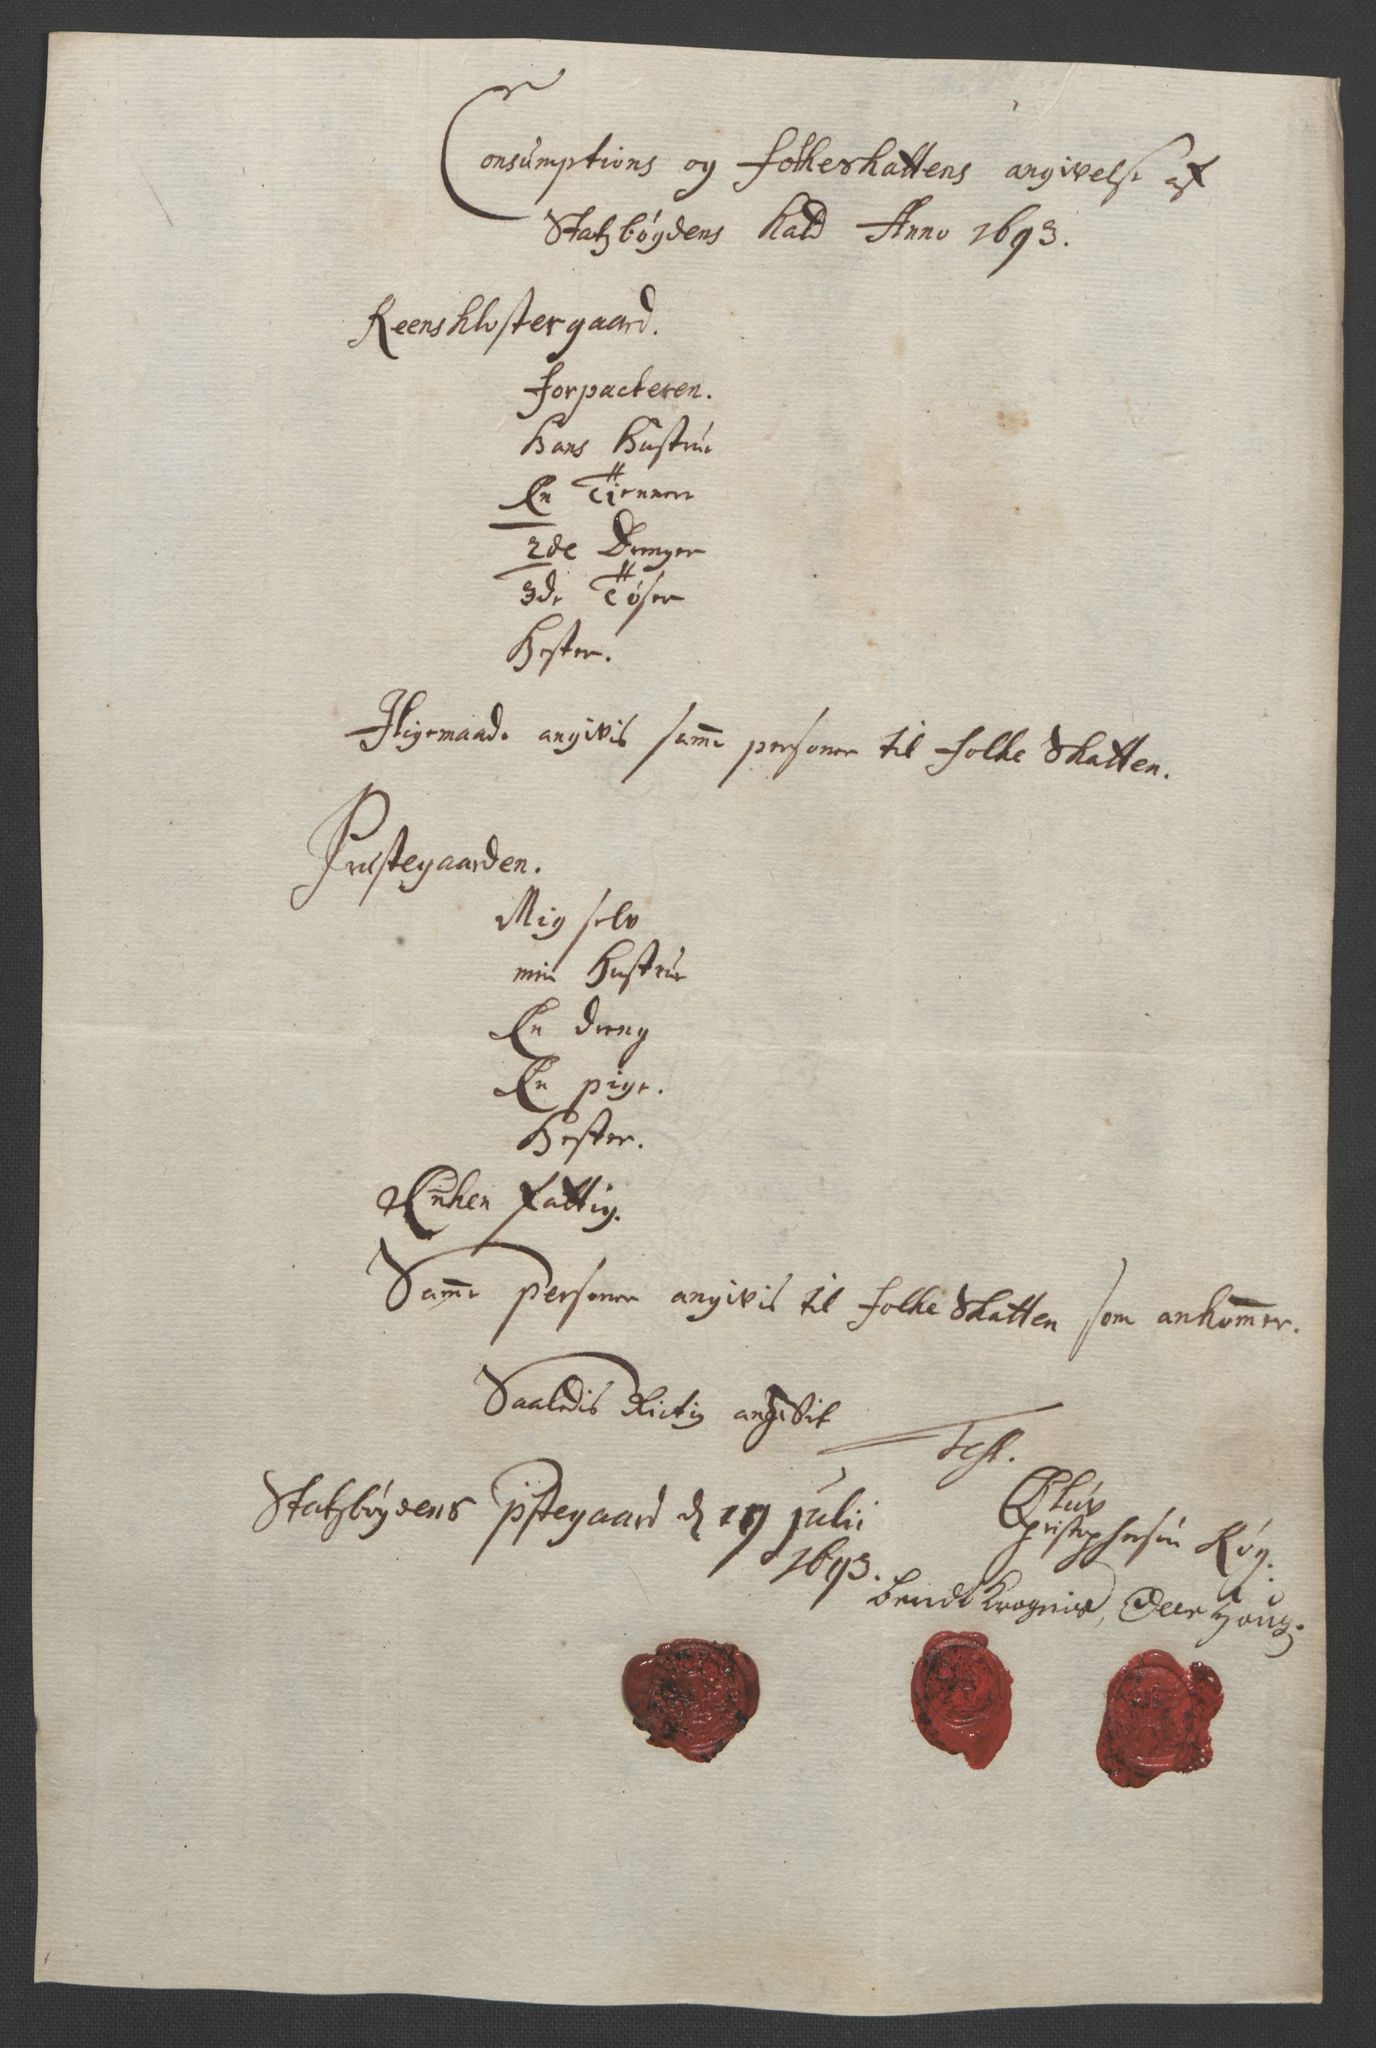 Consumptions og folkeskattens angivelse af
Statzbøydens Kald Anno 1693.
Reensklostergaard.
forpacteren.
hans Hustru
En Tienner
2de Drenger
3de Tøser
Hester.
Iligemaade angivis samme personer til folke Skatten.
Præstegaarden.
Mig selv
min Hustrue
En dreng
En pige.
Hester.
Enken fattig.
Samme personer angivis til folke Skatten som ankommer.
Saaledis Rictig angivit
Test.
Statzbøydens pstegaard d 19 julii
1693.
Oluv
Christophersøn Røg.
Bendt Krognis, Peer Houg.